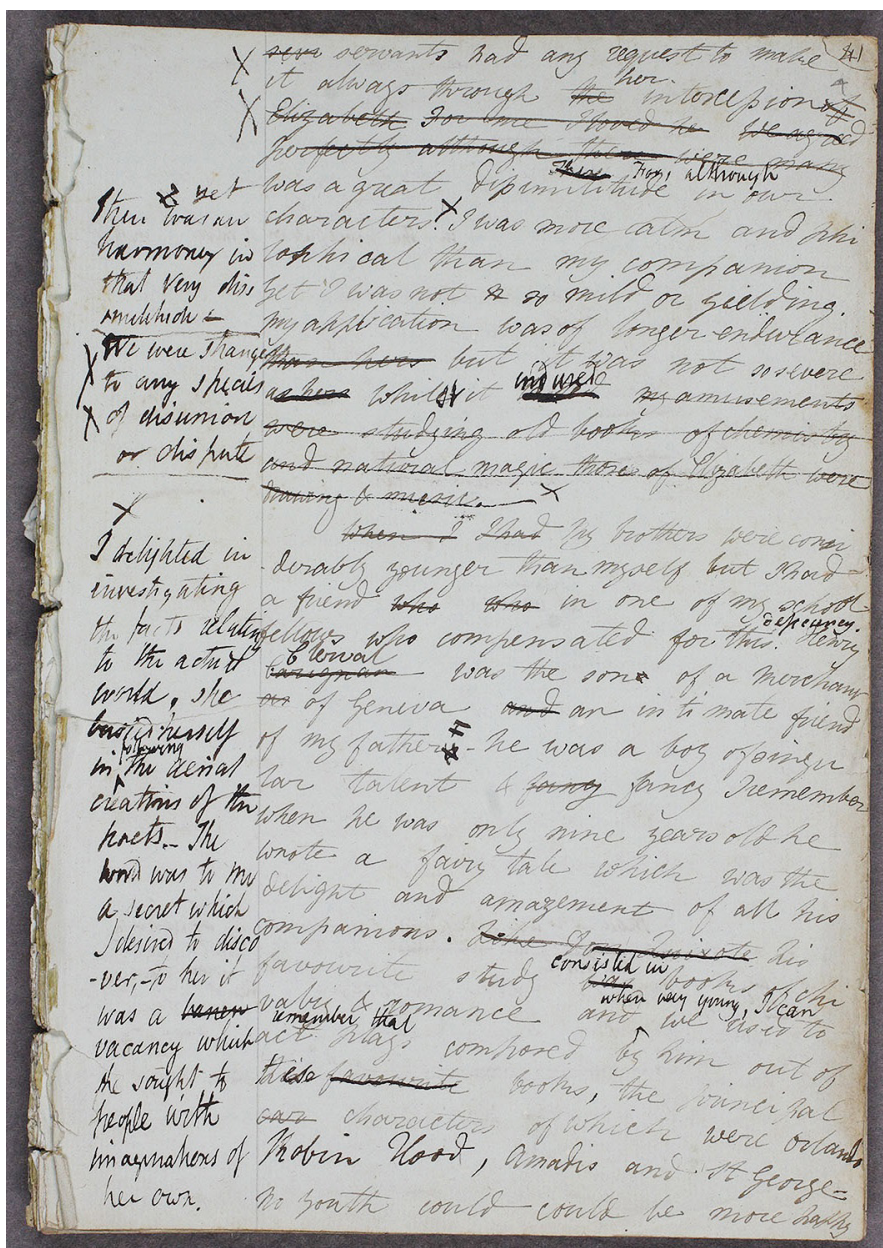 41
servants had any request to make
it always through the her intercession of
Elizabeth For me I loved he We agreed
perfectly although there were many
There For, although
was a great dissimilitude in our
characters. X I was more calm and phi
losophical than my companion
yet I was not so mild or yielding.
my application was of longer endurance
than hers but it was not so severe
as hers whilst it endured my amusements
were studying old books of chemistry
and natural magic those of Elizabeth were
drawing & music. X
when I I had My brothers were consi
derably younger than myself but I had
a friend who who in one of my school
fellows who compensated for this deficiency. Henry
Clerval
Carignan was the son of a merchant
as of Geneva and an intimate friend
of my father - he was a boy of singu
lar talent & fancy fancy I remember
when he was only nine years old he
wrote a fairy tale which was the
delight and amazement of all his
companions. Like Don Quixote his
favourite study consisted in was books of chi
valry & romance and when very young, I can
remember that we used to
act plays composed by him out of
these favourite books, the principal
characters of which were Orlando
Robin Hood, Amadis and St George-
no youth could could be more happy
X
X
yet
there was an
harmony in
that very diss
imilitude -
We were strangers
to any species
X of disunion
or dispute
X
I delighted in
investigating
the facts relating
to the actual
world, she
busied herself
in following the aerial
creations of the
poets - The
world was to me
a secret which
I desired to disco
-ver, - to her it
was a
vacancy which
she sought to
people with
imaginations of
her own.